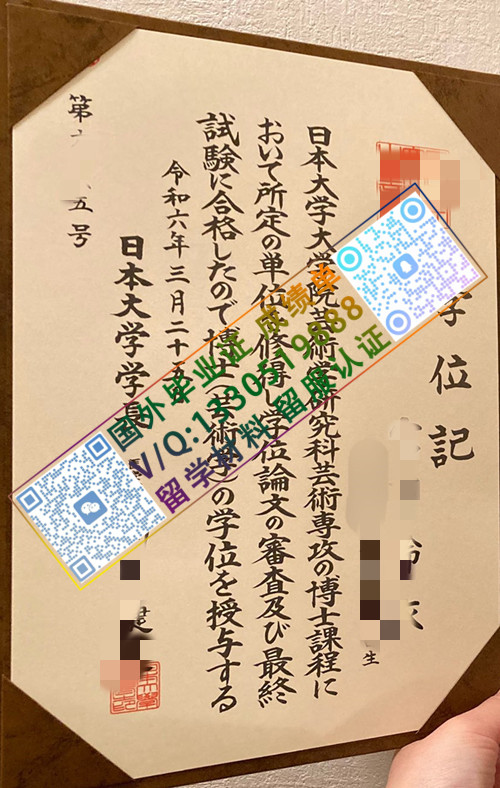 学位記
生
日本大学大学院芸術学研究科芸術専攻の博士課程に
おいて所定の単位を修得し学位論文の審査及び最終
試験に合格したので博士(芸術学)の学位を授与する
令和六年三月二十五日
日本大学学長 健
第 五号
国外毕业证 成绩单
V/Q:1330519888
留学材料 留服认证